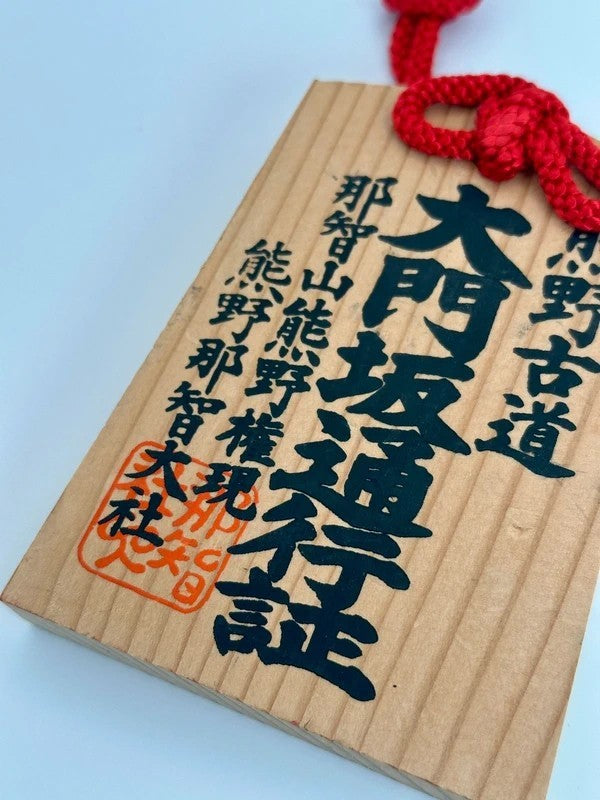 熊野古道
大門坂通行証
那智山熊野権現
熊野那智大社